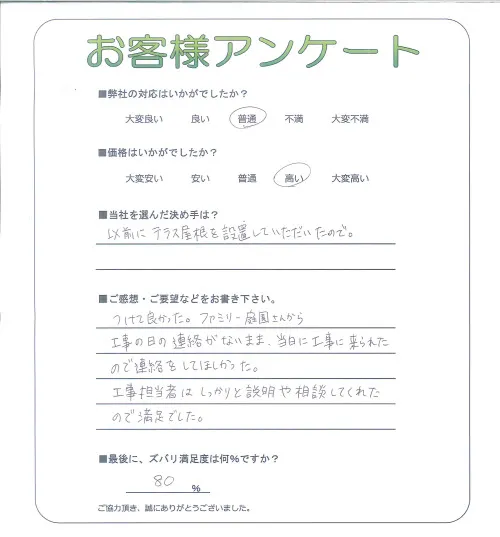 お客様アンケート
■弊社の対応はいかがでしたか？
大変良い 良い 普通 不満 大変不満
■価格はいかがでしたか？
大変安い 安い 普通 高い 大変高い
■当社を選んだ決め手は？
以前に テラス屋根を設置していただいたので。
■ご感想・ご要望などをお書き下さい。
つけて良かった。ファミリー庭園さんから
工事の日の連絡がないまま、当日に工事に来られた
ので連絡をしてほしかった。
工事担当者はしっかりと説明や相談してくれた
ので満足でした。
■最後に、ズバリ満足度は何％ですか？
80 %
ご協力頂き、誠にありがとうございました。